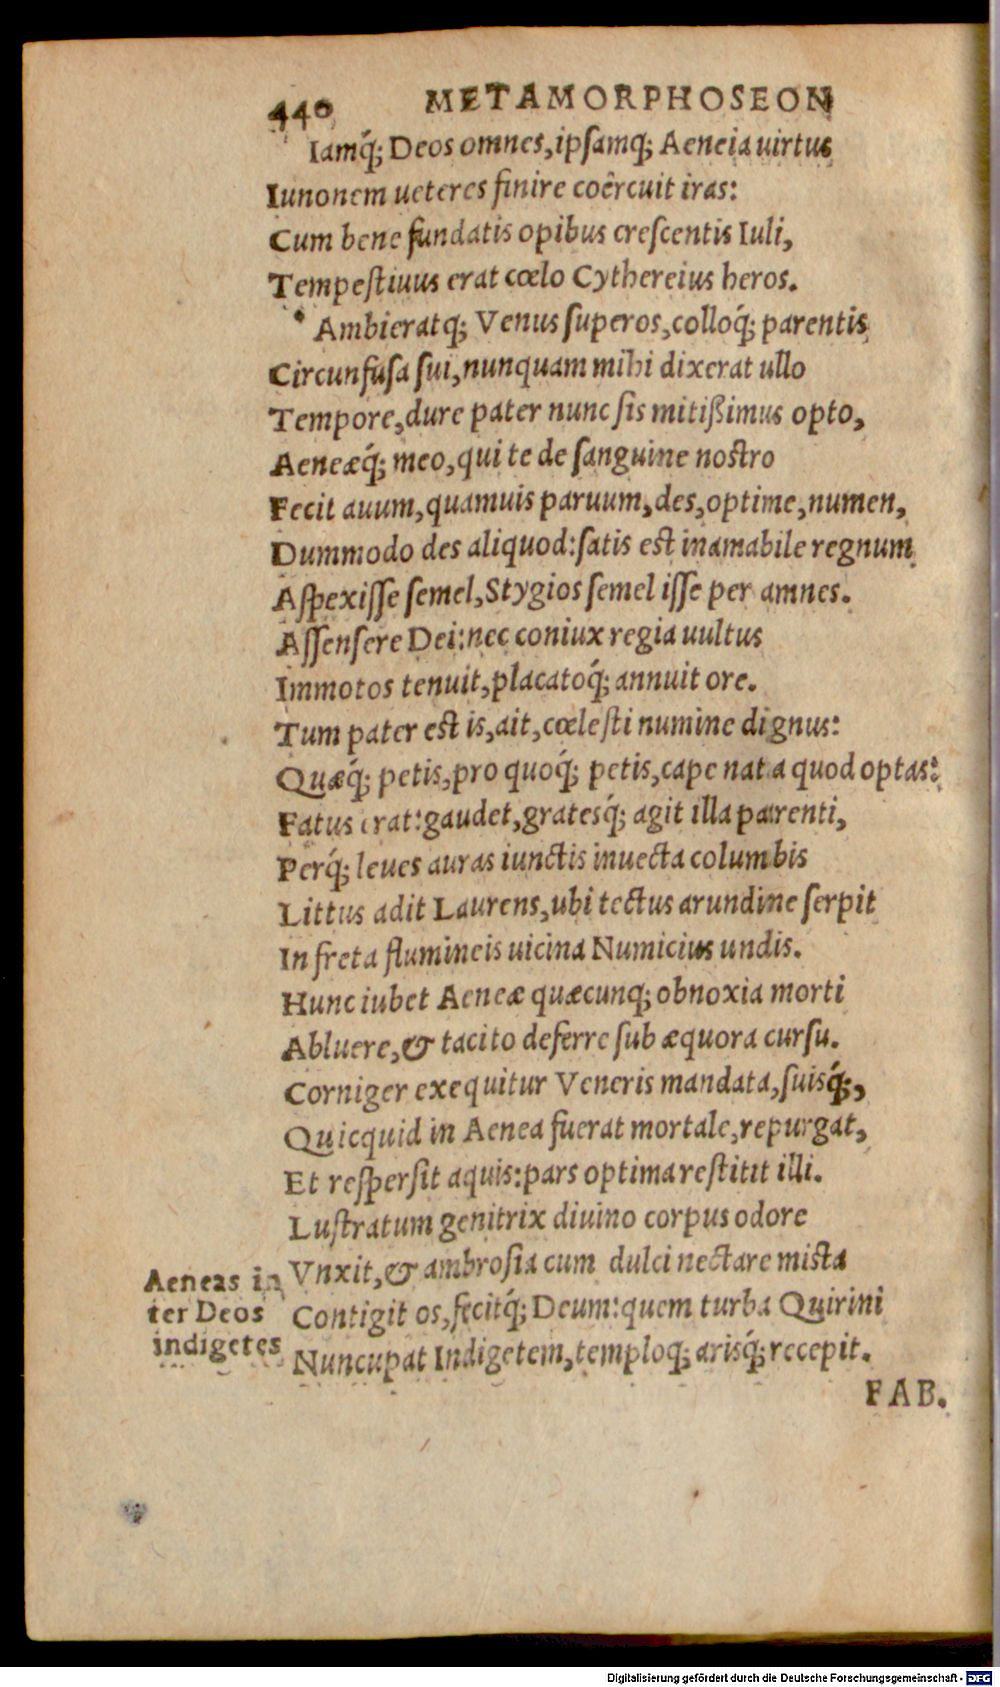 440 METAMORPHOSEON
Iamq́; Deos omnes, ipsamq; Aeneia uirtus
Iunonem ueteres finire coërcuit iras:
Cum bene fundatis opibus crescentis Iuli,
Tempestiuus erat cœlo Cythereius heros.
Ambieratq; Venus superos, colloq́; parentis
Circunfusa sui, nunquam mihi dixerat ullo
Tempore, dure pater nunc sis mitißimus opto,
Aeneæq́; meo, qui te de sanguine nostro
Fecit auum, quamuis paruum, des, optime, numen,
Dummodo des aliquod: satis est inamabile regnum
Aspexisse semel, Stygios semel isse per amnes.
Assensere Dei: nec coniux regia uultus
Immotos tenuit, placatoq́; annuit ore.
Tum pater est is, ait, cœlesti numine dignus:
Quæq́; petis, pro quoq́; petis, cape nata quod optas:
Fatus erat: gaudet, gratesq́; agit illa parenti,
Perq́; leues auras iunctis inuecta columbis
Littus adit Laurens, ubi tectus arundine serpit
In freta flumineis uicina Numicius undis.
Hunc iubet Aeneæ quæcunq; obnoxia morti
Abluere, & tacito deferre sub æquora cursu.
Corniger exequitur Veneris mandata, suisq́;,
Quicquid in Aenea fuerat mortale, repurgat,
Et respersit aquis: pars optima restitit illi.
Lustratum genitrix diuino corpus odore
Vnxit, & ambrosia cum dulci nectare mista
Contigit os, fecitq́; Deum: quem turba Quirini
Nuncupat Indigetem, temploq; arisq́; recepit.
Aeneas in
ter Deos
indigetes
FAB.
Digitalisierung gefördert durch die Deutsche Forschungsgemeinschaft - DFG